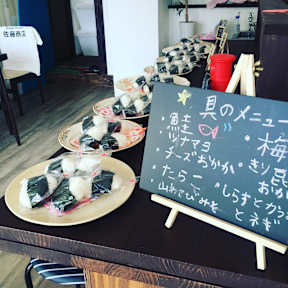 佐藤商店
具のメニュー
・鮭 ・梅
・ツナマヨ
・チーズおかか ・きり昆
・たらこ おかか
・山わさびみそ ・しらすとかつお
とネギ